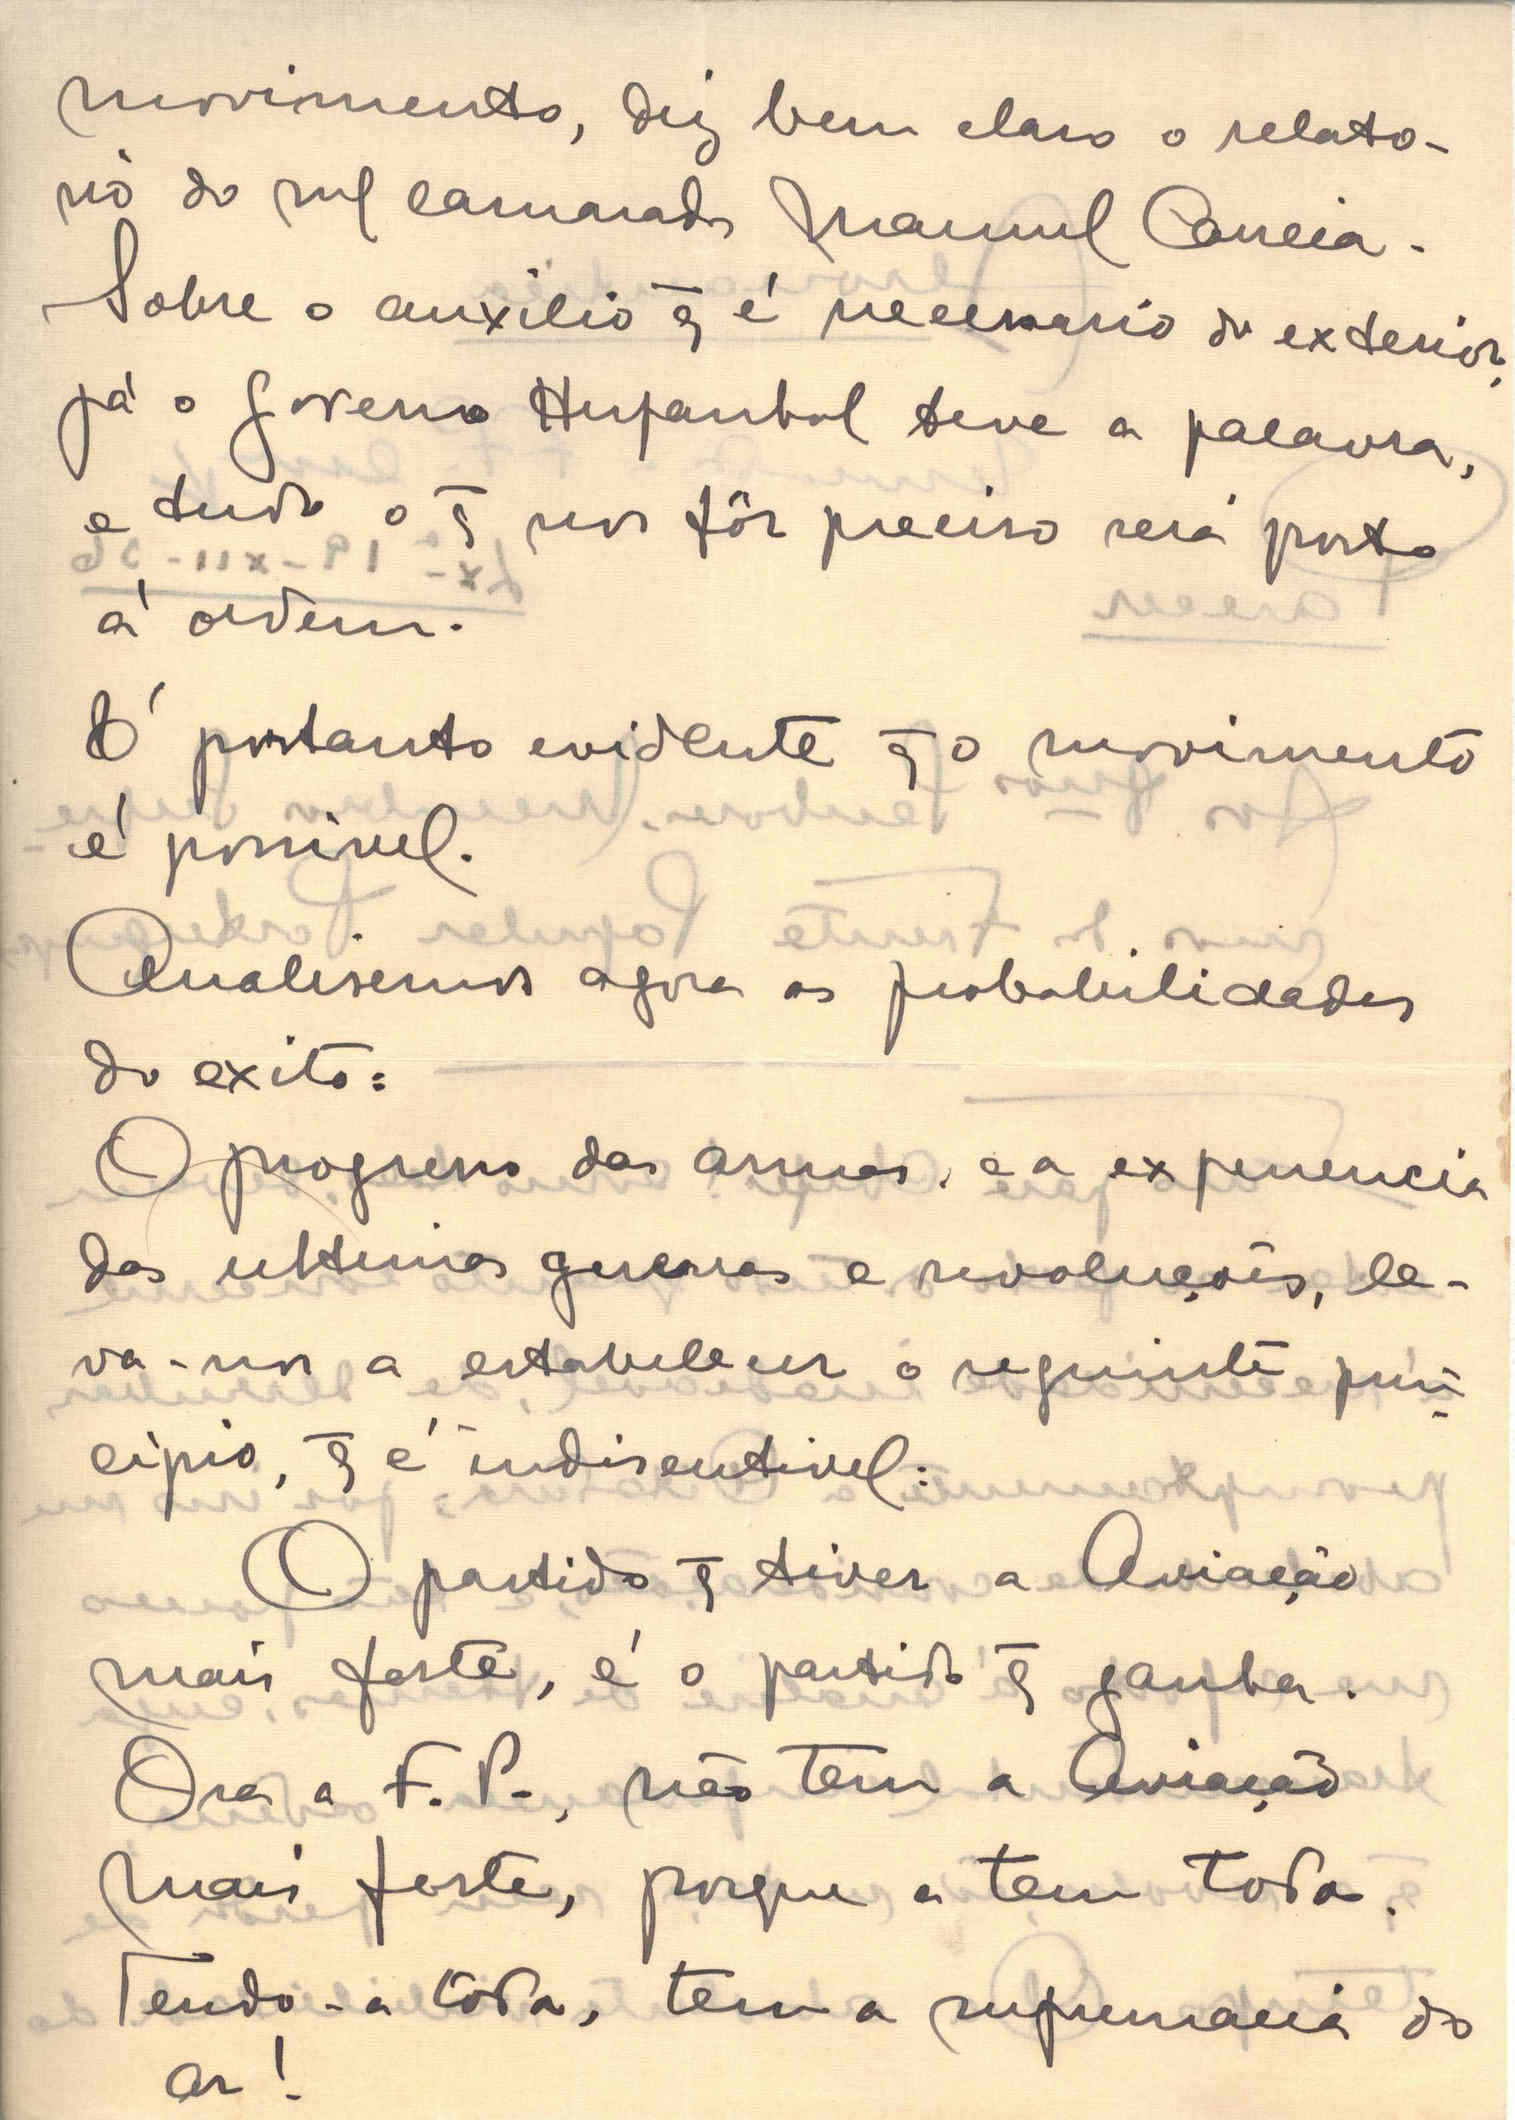 movimento, diz bem claro o relato-
rio do camarada Manuel
Sobre o auxilio q̄ é necessario do exterior,
já o Governo Hespanhol teve a palavra,
e tudo o q̄ nos fôr preciso será posto
á ordem.
É portanto evidente q̄ o movimento
é possivel.
Analisemos agora as probabilidades
do exito:
O progresso das armas, e a experiencia
das ultimas guerras e revoluções, le-
va-nos a estabelecer o seguinte prin-
cipio, q̄ é indiscutivel:
O partido q̄ tiver a Aviação
mais forte, é o partido q̄ ganha.
Ora a F. P., não tem a Aviação
mais forte, porque a tem toda.
Tendo-a toda, tem a supremacia do
ar!